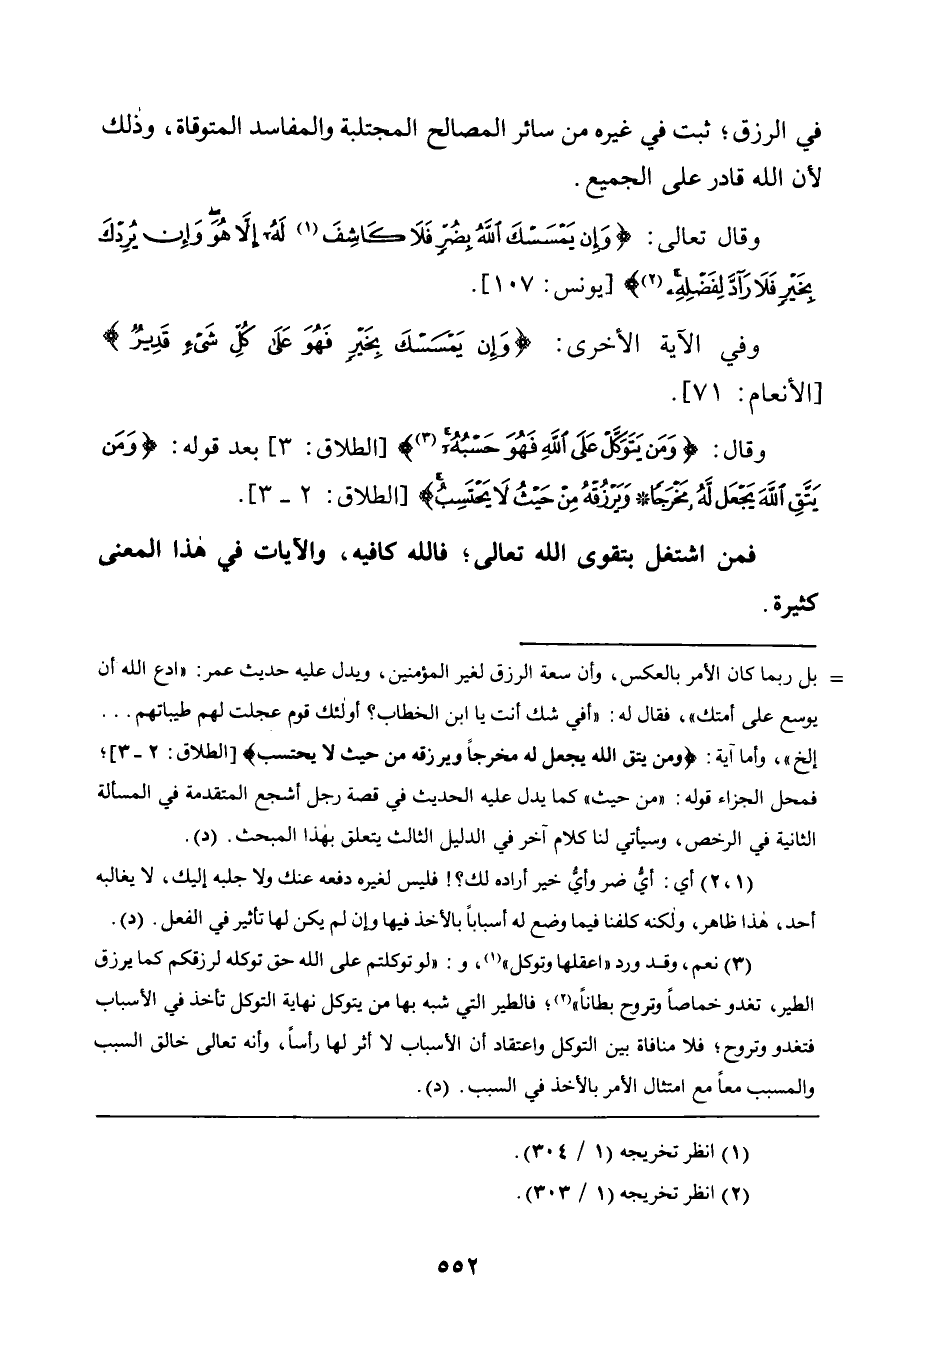 في الرزق؛ ثبت في غيره من سائر المصالح المجتلبة والمفاسد المتوقاة، وذٰلك
لأن الله قادر على الجميع.
وقال تعالى: ﴿وَإِن يَمْسَسْكَ ٱللَّهُ بِضُرٍّ فَلَا كَاشِفَ (١) لَهُۥٓ إِلَّا هُوَۖ وَإِن يُرِدْكَ
بِخَيْرٍ فَلَا رَآدَّ لِفَضْلِهِۦۚ (٢)﴾ [يونس: ١٠٧].
وفي الآية الأخرى: ﴿وَإِن يَمْسَسْكَ بِخَيْرٍ فَهُوَ عَلَىٰ كُلِّ شَىْءٍ قَدِيرٌ﴾
[الأنعام: ٧١].
وقال: ﴿وَمَن يَتَوَكَّلْ عَلَى ٱللَّهِ فَهُوَ حَسْبُهُۥٓۚ (٣)﴾ [الطلاق: ٣] بعد قوله: ﴿وَمَن
يَتَّقِ ٱللَّهَ يَجْعَل لَّهُۥ مَخْرَجًا * وَيَرْزُقْهُ مِنْ حَيْثُ لَا يَحْتَسِبُۚ﴾ [الطلاق: ٢ ـ ٣].
فمن اشتغل بتقوى الله تعالى؛ فالله كافيه، والآيات في هٰذا المعنى
كثيرة.
= بل ربما كان الأمر بالعكس، وأن سعة الرزق لغير المؤمنين، ويدل عليه حديث عمر: «ادع الله أن
يوسع على أمتك»، فقال له: «أفي شك أنت يا ابن الخطاب؟ أولٰئك قوم عجلت لهم طيباتهم . . .
إلخ»، وأما آية: ﴿ومن يتق الله يجعل له مخرجاً ويرزقه من حيث لا يحتسب﴾ [الطلاق: ٢ ـ ٣]؛
فمحل الجزاء قوله: «من حيث» كما يدل عليه الحديث في قصة رجل أشجع المتقدمة في المسألة
الثانية في الرخص، وسيأتي لنا كلام آخر في الدليل الثالث يتعلق بهٰذا المبحث. (د).
(١، ٢) أي: أيُّ ضر وأيُّ خير أراده لك؟! فليس لغيره دفعه عنك ولا جلبه إليك، لا يغالبه
أحد، هٰذا ظاهر، ولٰكنه كلفنا فيما وضع له أسباباً بالأخذ فيها وإن لم يكن لها تأثير في الفعل. (د).
(٣) نعم، وقد ورد «اعقلها وتوكل»(١)، و: «لو توكلتم على الله حق توكله لرزقكم كما يرزق
الطير، تغدو خماصاً وتروح بطاناً»(٢)؛ فالطير التي شبه بها من يتوكل نهاية التوكل تأخذ في الأسباب
فتغدو وتروح؛ فلا منافاة بين التوكل واعتقاد أن الأسباب لا أثر لها رأساً، وأنه تعالى خالق السبب
والمسبب معاً مع امتثال الأمر بالأخذ في السبب. (د).
(١) انظر تخريجه (١ / ٣٠٤).
(٢) انظر تخريجه (١ / ٣٠٣).
٥٥٢